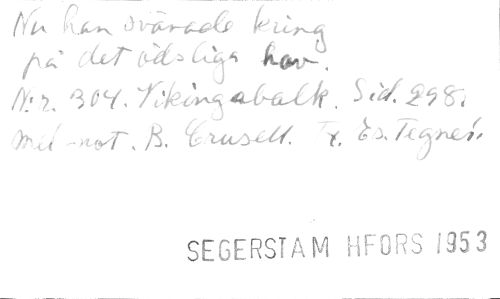 Nu han svävade kring
på det ödsliga hav.
N:r. 304. Vikingabalk. Sid. 298.
mel-not. B. Crusell. Tx. Es. Tegnér.
SEGERSTAM HFORS 1953